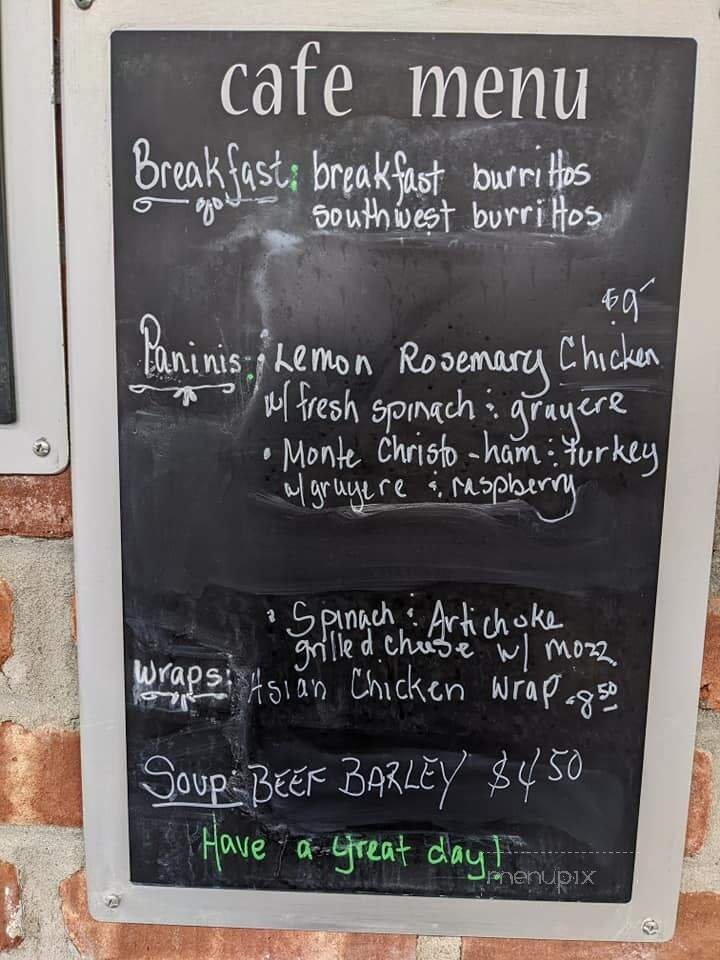 cafe menu
Breakfast: breakfast burrittos
southwest burrittos
$9
Paninis: • Lemon Rosemary Chicken
w/ fresh spinach & gruyere
• Monte Christo - ham & turkey
w/ gruyere & raspberry
• Spinach & Artichoke
grilled cheese w/ mozz.
Wraps: Asian Chicken wrap 8.50
Soup: BEEF BARLEY $4.50
Have a great day!
menupix